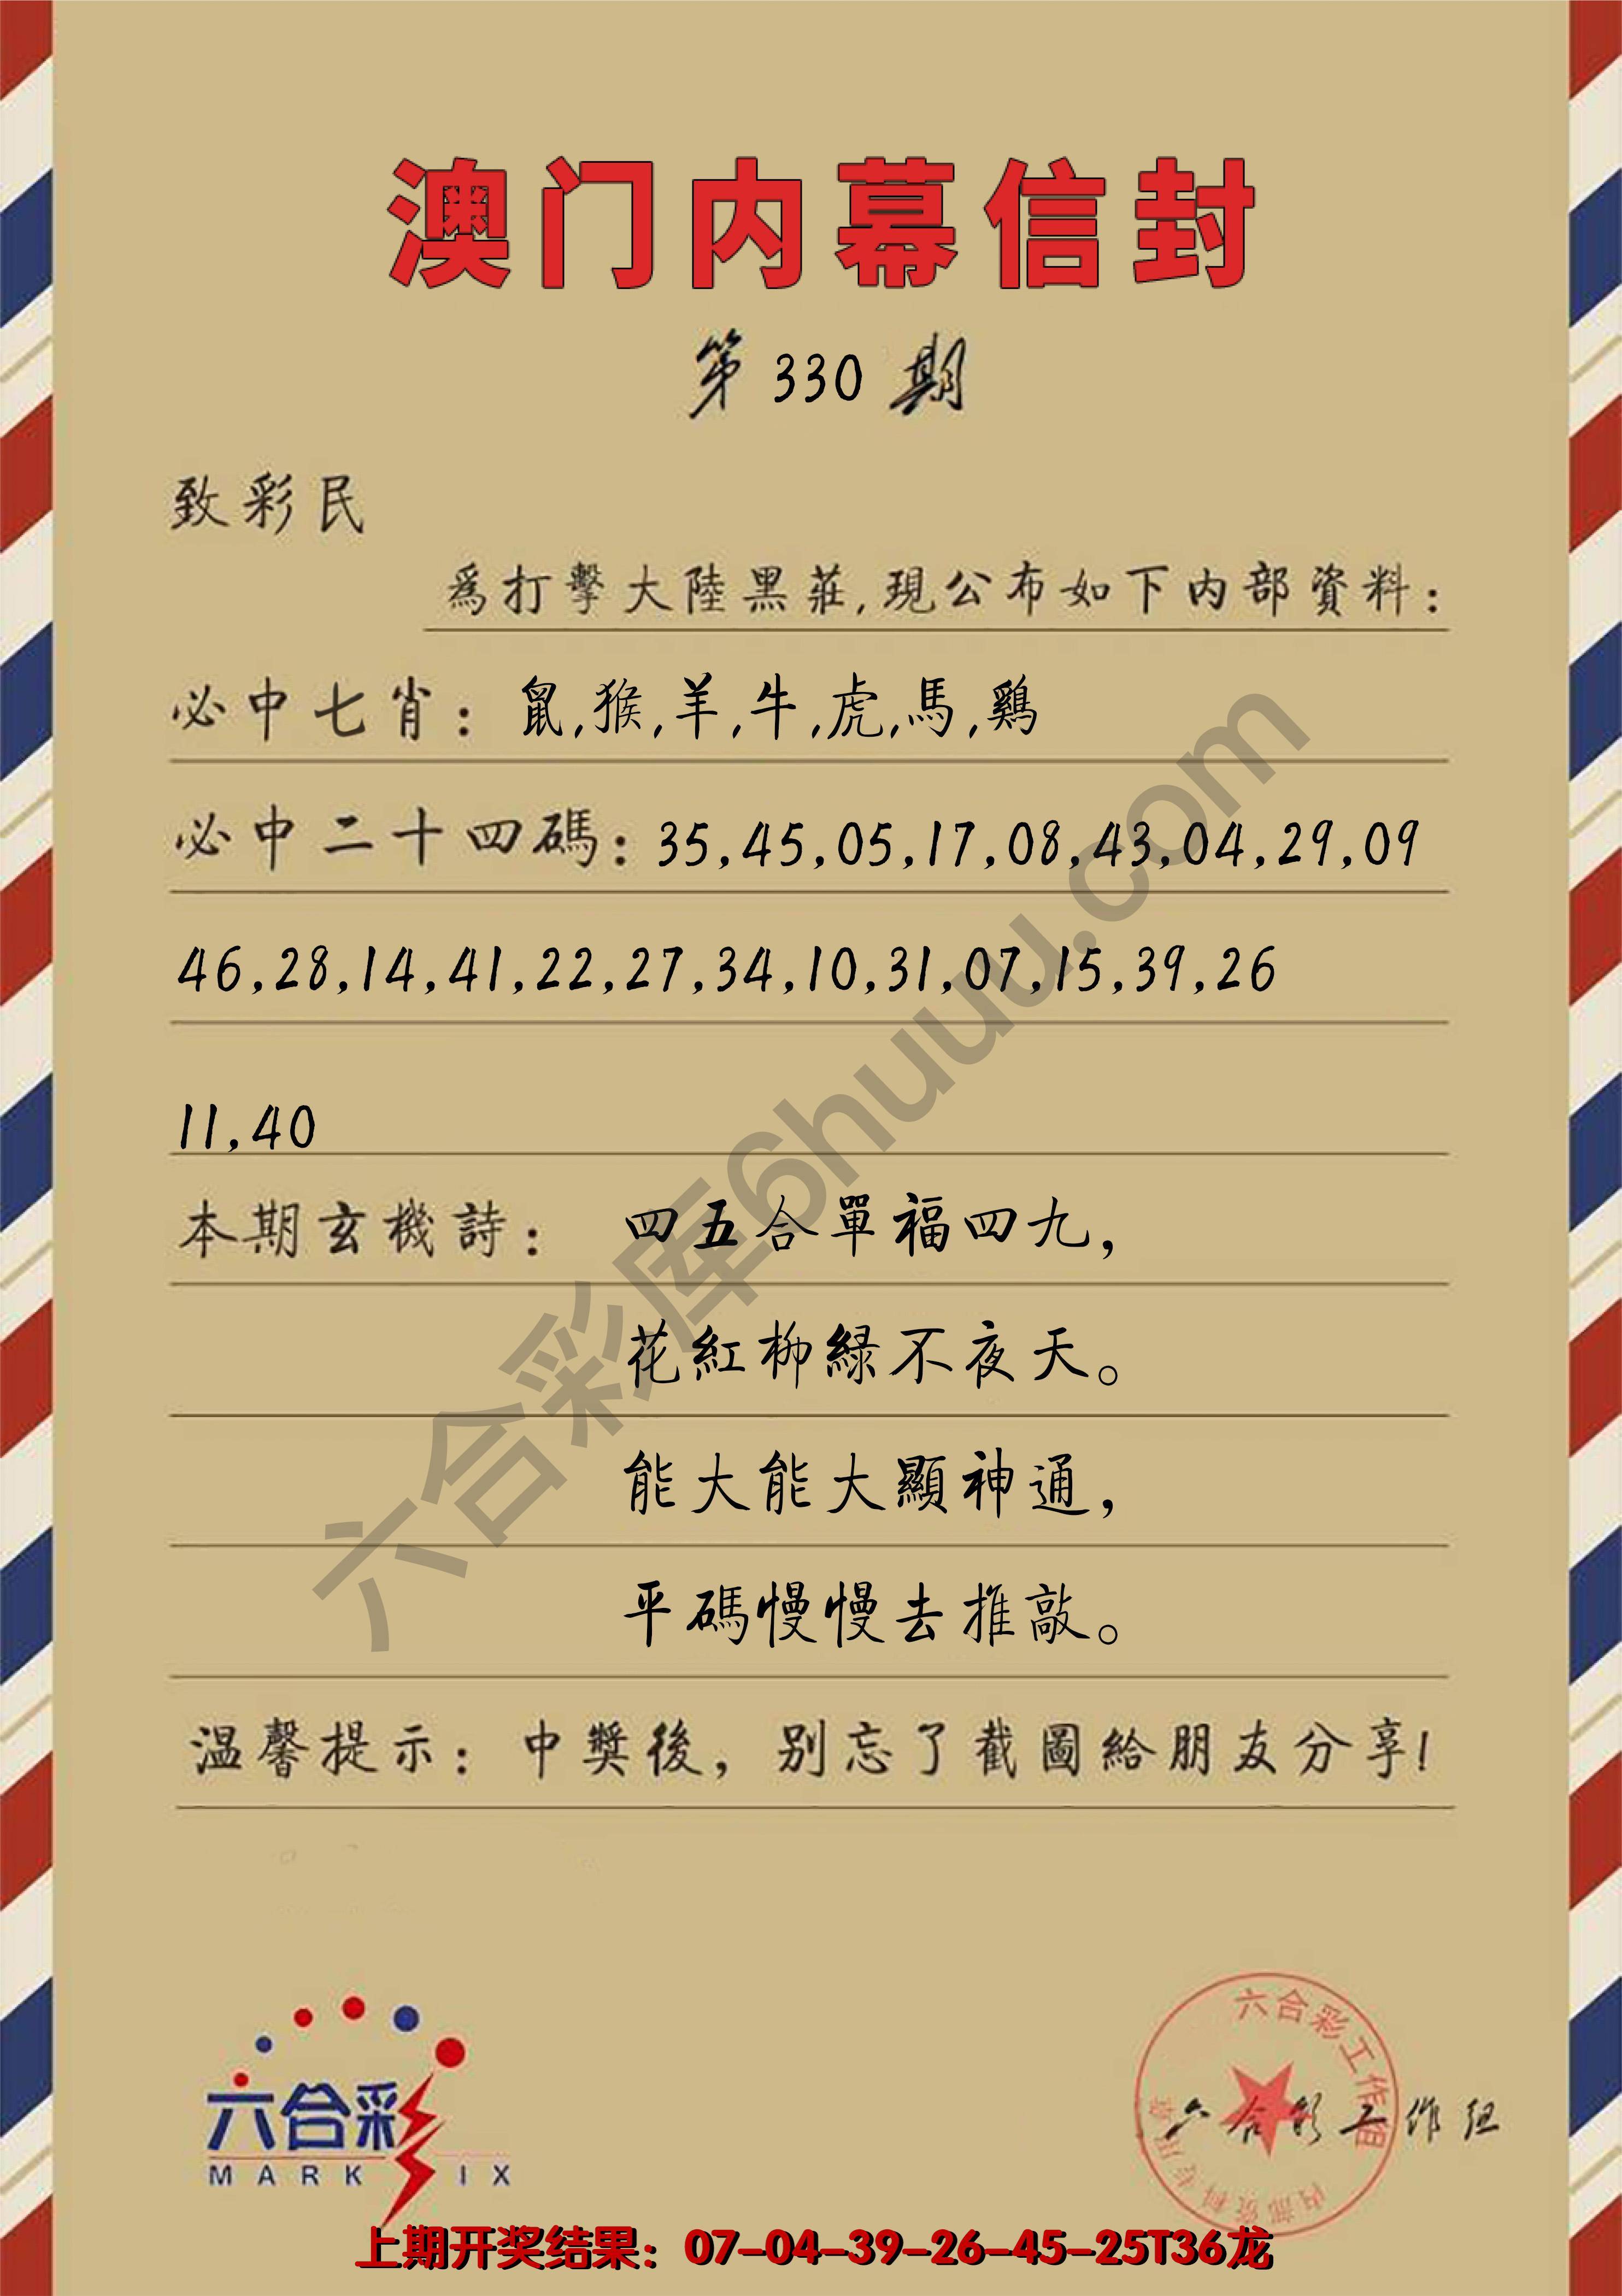 澳门内幕信封
第 330 期
致彩民
爲打擊大陸黑莊,現公布如下内部資料:
必中七肖: 鼠,猴,羊,牛,虎,馬,鷄
必中二十四碼: 35,45,05,17,08,43,04,29,09
46,28,14,41,22,27,34,10,31,07,15,39,26
11,40
本期玄機詩: 四五合單福四九,
花紅柳緑不夜天。
能大能大顯神通,
平碼慢慢去推敲。
温馨提示: 中獎後, 别忘了截圖給朋友分享!
六合彩库6huuu.com
六合彩
MARK SIX
六合彩工作组
内部资料专用章
六合彩工作组
上期开奖结果: 07-04-39-26-45-25T36龙